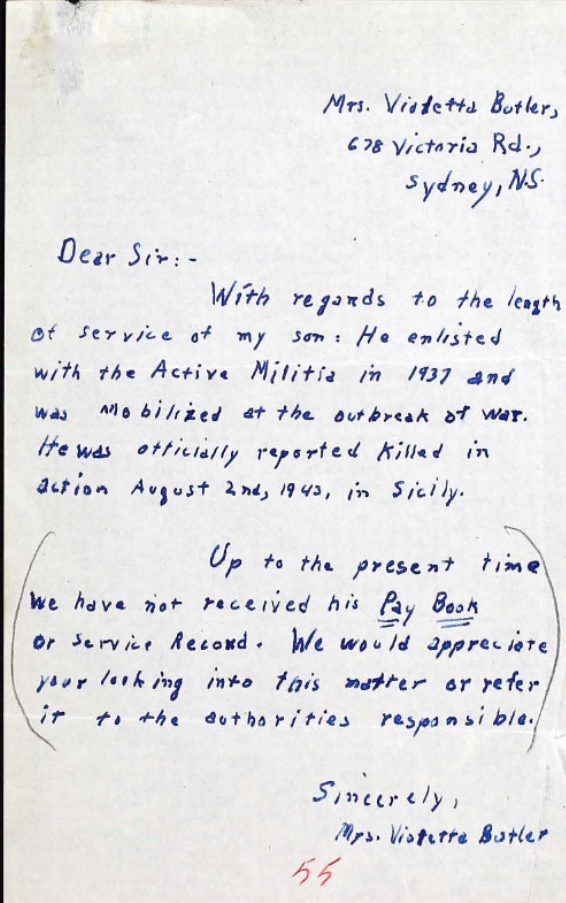 Mrs. Violetta Butler,
678 Victoria Rd.,
Sydney, N.S.
Dear Sir:-
With regards to the length
of service of my son: He enlisted
with the Active Militia in 1937 and
was mobilized at the outbreak of war.
He was officially reported killed in
action August 2nd, 1943, in Sicily.
Up to the present time
we have not received his Pay Book
or Service Record. We would appreciate
your looking into this matter or refer
it to the authorities responsible.
Sincerely,
Mrs. Violetta Butler
55